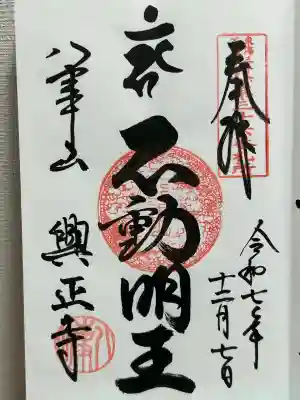 奉拝
令和七年
十二月七日
不動明王
八事山
興正寺